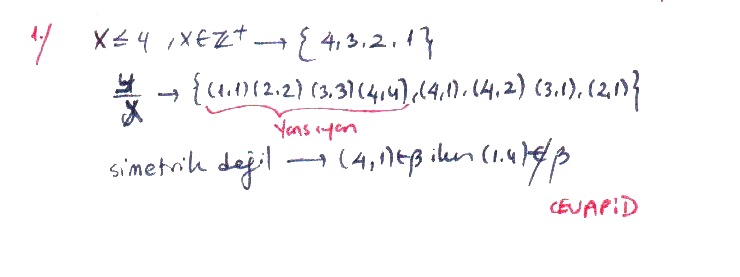 1-) x ≤ 4 , x ∈ Z⁺ → { 4, 3, 2, 1 }
y/x → { (1,1) (2,2) (3,3) (4,4), (4,1), (4,2) (3,1), (2,1) }
Yansıyan
simetrik değil → (4,1) ∈ β iken (1,4) ∉ β
CEVAP: D